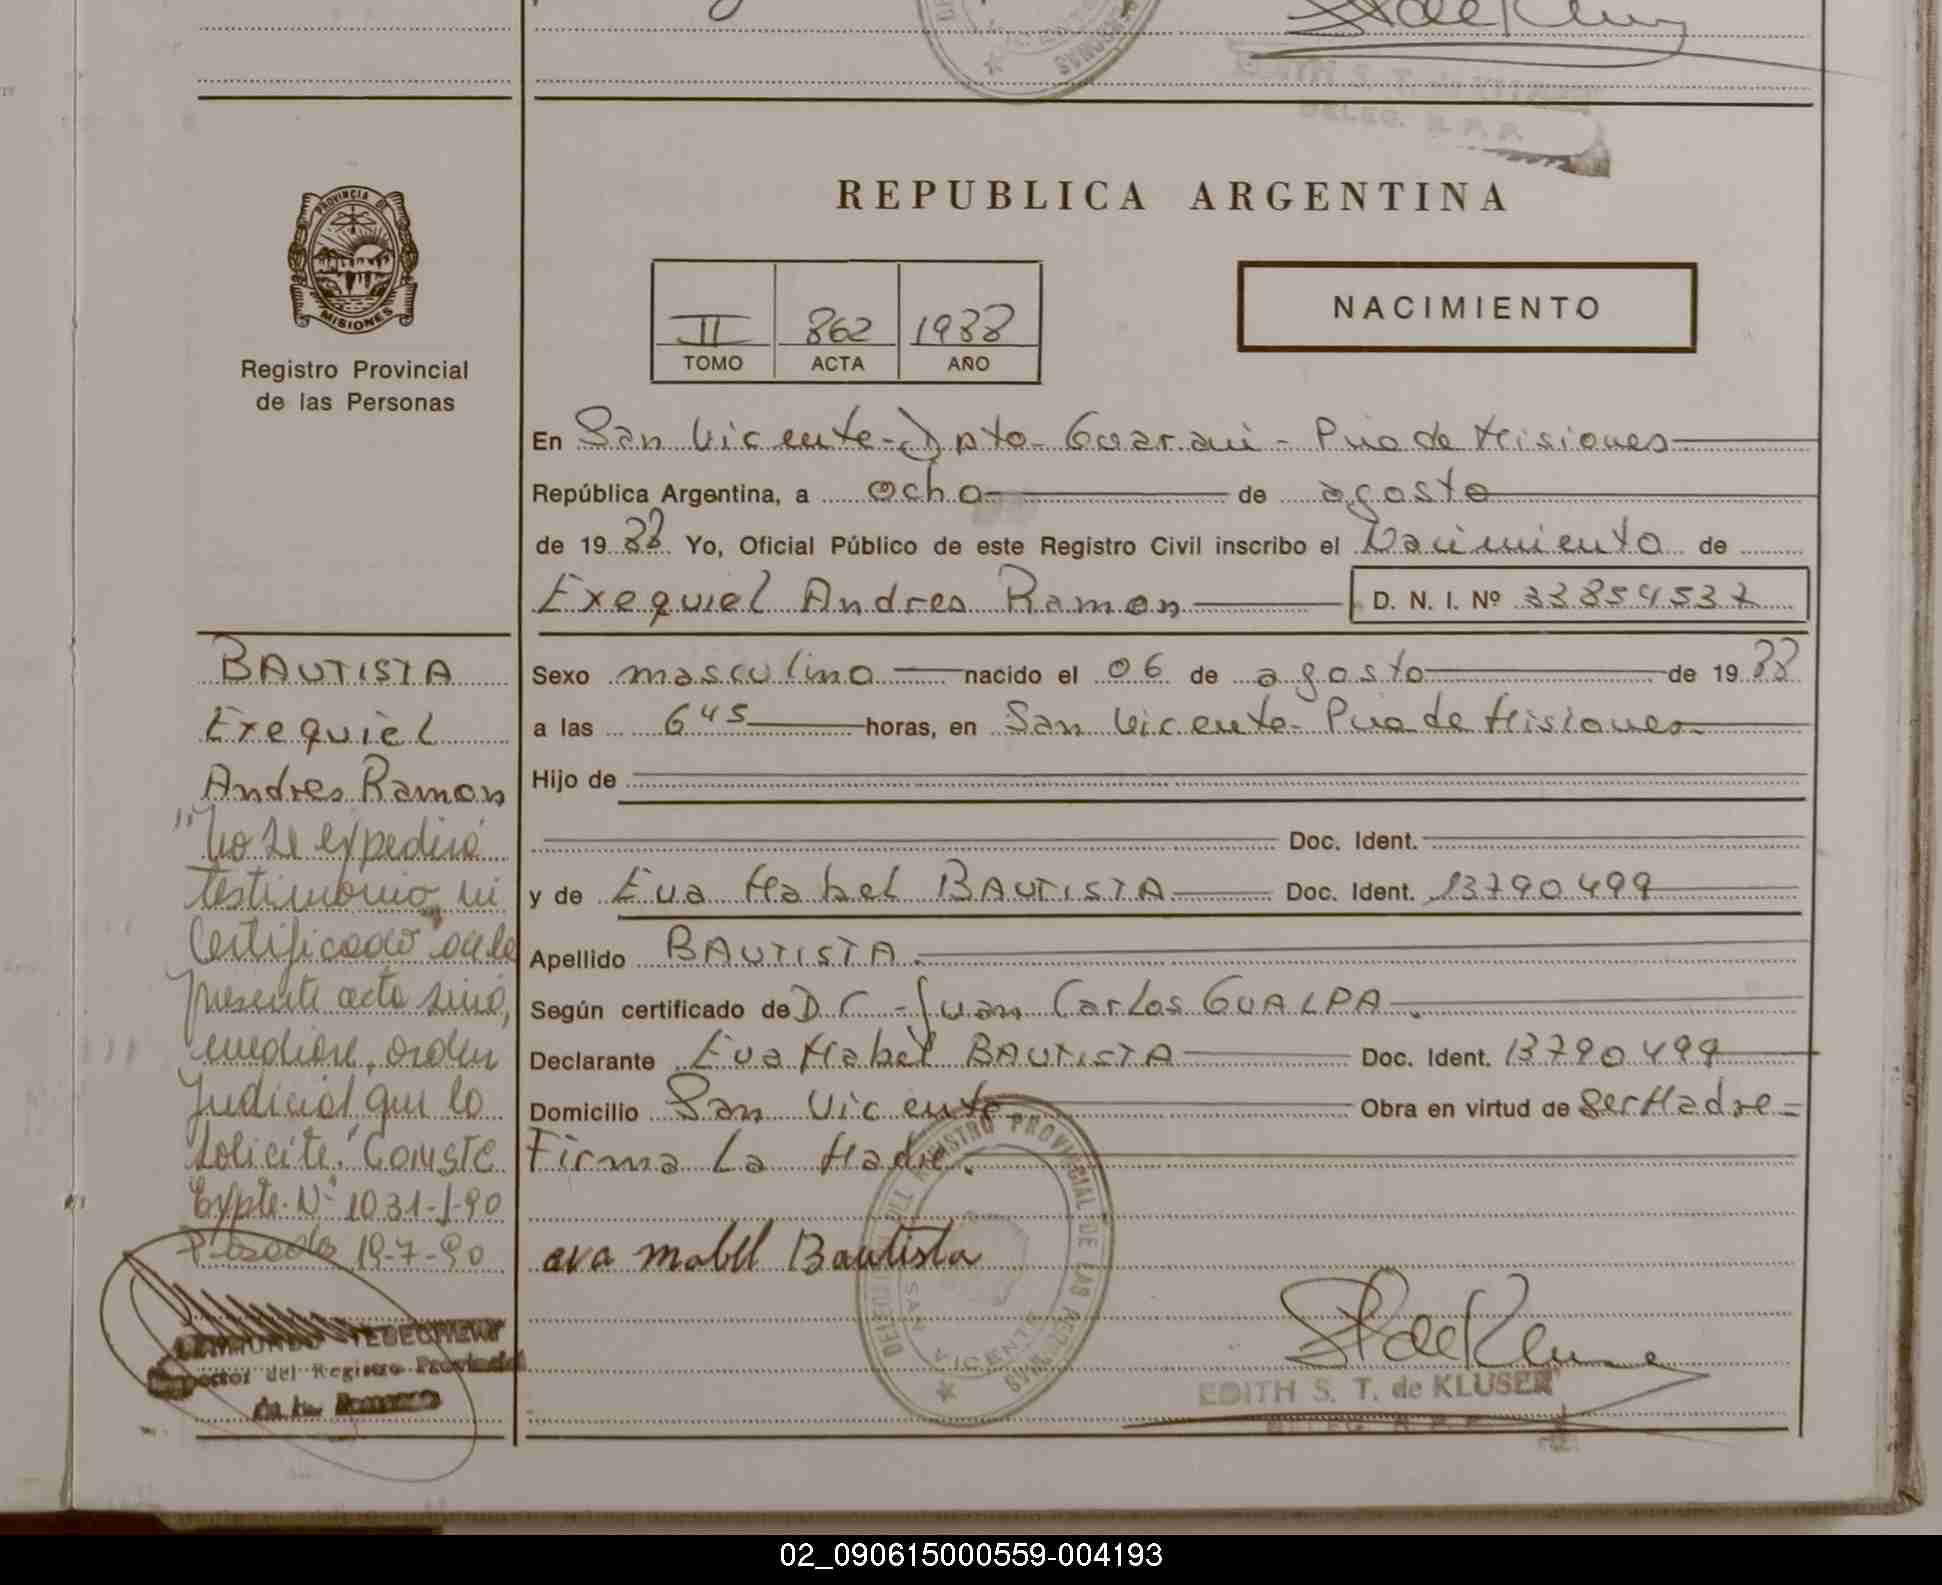 PROVINCIA DE
MISIONES
Registro Provincial
de las Personas
REPUBLICA ARGENTINA
II 862 1988
TOMO ACTA AÑO
NACIMIENTO
En San Vicente - Dpto - Guarani - Pcia de Misiones
República Argentina, a ocho de agosto
de 19 88 Yo, Oficial Público de este Registro Civil inscribo el Nacimiento de
Exequiel Andres Ramon D. N. I. Nº 33854537
Sexo masculino nacido el 06 de agosto de 19 88
a las 6 45 horas, en San Vicente - Pcia de Misiones
Hijo de
Doc. Ident.
y de Eva Mabel BAUTISTA Doc. Ident. 13790499
Apellido BAUTISTA.
Según certificado de DC - Juan Carlos GUALPA.
Declarante Eva Mabel BAUTISTA Doc. Ident. 13790499
Domicilio San Vicente Obra en virtud de Ser Madre -
Firma La Madre.
eva mabel Bautista
DEL REGISTRO PROVINCIAL DE LAS PERSONAS
SAN VICENTE
EDITH S. T. de KLUSER
DELEG. R. P. P.
BAUTISTA
Exequiel
Andres Ramon
"No se expedirá
testimonio ni
Certificado de la
presente acta sino,
mediare, orden
Judicial que lo
solicite." Conste
Expte. Nº 1031-J-90
Posadas 19-7-90
del Registro Provincial
DELEG. R. P. P.
02_090615000559-004193